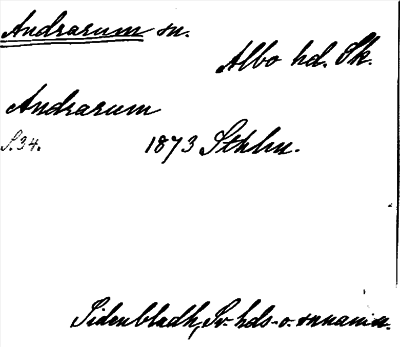 Andrarum sn.
Albo hd. Sk.
Andrarum
S.34. 1873 Sthlm.
Sidenbladh, Sv. hds- o. snnamn.